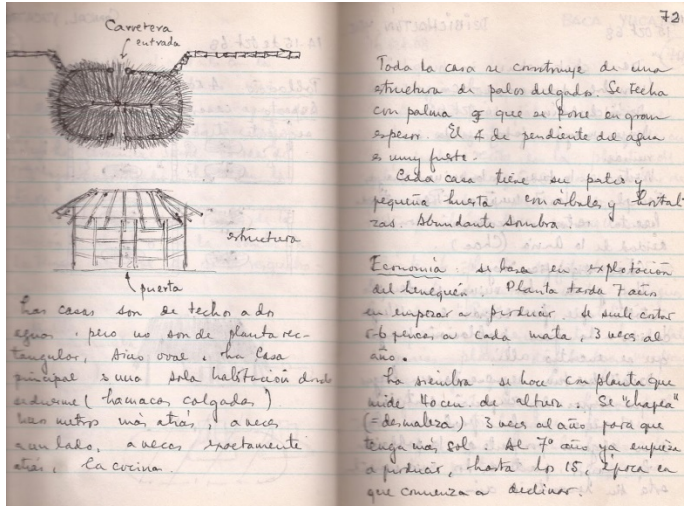 Carretera
entrada
estructura
puerta
Las casas son de techo a dos
aguas, pero no son de planta rec-
tangular, sino oval. La casa
principal es una sola habitación donde
se duerme (hamacas colgadas)
unos metros más atrás, a veces
a un lado, a veces exactamente
atrás, la cocina.
72
Toda la casa se construye de una
estructura de palos delgados. Se techa
con palma que se pone en gran
espesor. El de pendiente del agua
es muy fuerte.
Cada casa tiene su patio y
pequeña huerta con árboles y hortali-
zas. Abundante sombra.
Economía se basa en explotación
del henequén. Planta tarda 7 años
en empezar a producir. Se suele cortar
5-6 pencas a cada mata, 3 veces al
año.
La siembra se hace con planta que
mide 40 cm. de altura. Se "chapea"
(=desmaleza) 3 veces al año para que
tenga más sol. Al 7º año ya empieza
a producir, hasta los 15, época en
que comienza a declinar.